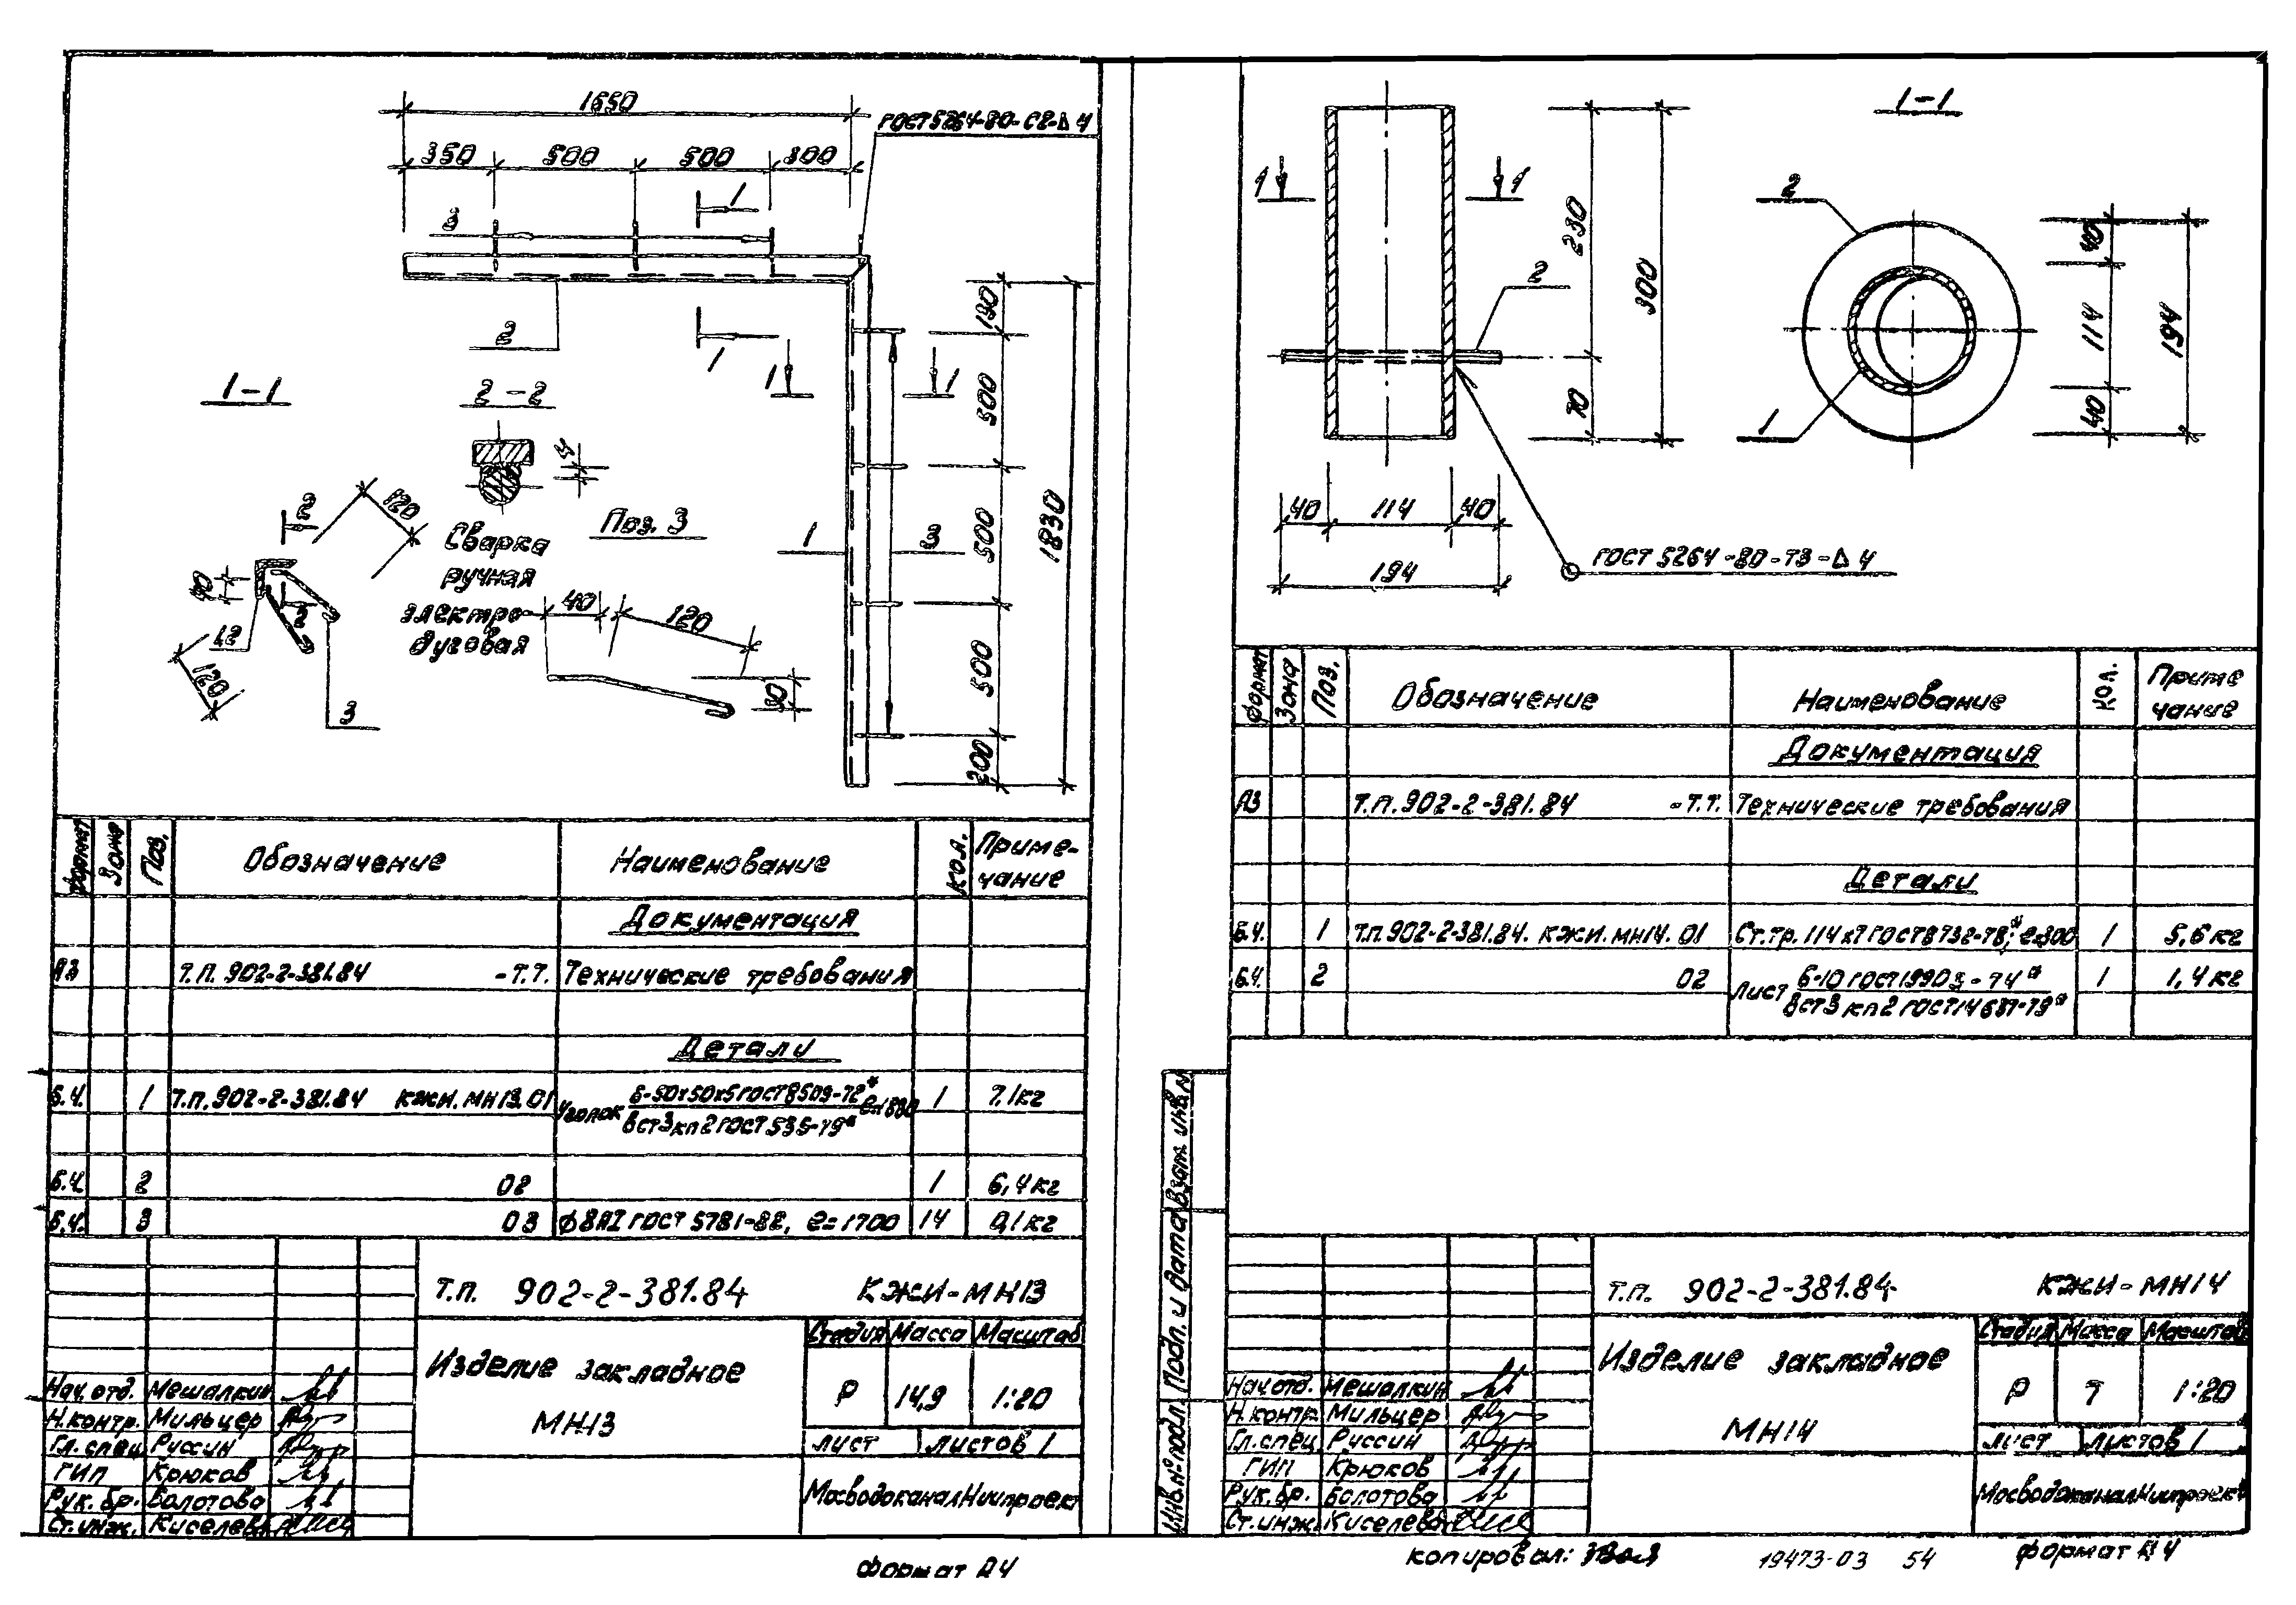 1650
ГОСТ 5264-80-С2-Δ4
350 500 500 300
1
3
2
1
1 1
190
500
500
500
200
1830
1-1
2-2
4
Поз. 3
Сварка
ручная
электро-
дуговая
120
2
40
2
42
120
3
40
120
30
1
3
Формат Зона Поз. Обозначение Наименование Кол. Приме-
чание
Документация
А3 Т.П. 902-2-381.84 -Т.Т. Технические требования
Детали
Б.Ч. 1 Т.П. 902-2-381.84 КЖИ.МН13.01 Уголок Б-50х50х5 ГОСТ 8509-72* ℓ=1830 1 7,1кг
Вст3кп2 ГОСТ 535-79*
Б.Ч. 2 02 1 6,4кг
Б.Ч. 3 03 ф8АI ГОСТ 5781-82, ℓ=1700 14 0,1кг
Т.П. 902-2-381.84 КЖИ-МН13
Изделие закладное
МН13
Стадия Масса Масштаб
Р 14,9 1:20
Лист Листов 1
МосводоканалНиипроект
Нач.отд. Мешалкин
Н.контр. Мильцер
Гл.спец. Руссин
ГИП Крюков
Рук.бр. Болотова
Ст.инж. Киселева
Формат А4
1-1
1 1
2
230
70
300
40 114 40
194
ГОСТ 5264-80-Т3-Δ4
2
1
40
114
40
194
Формат Зона Поз. Обозначение Наименование Кол. Приме
чание
Документация
А3 Т.П. 902-2-381.84 -Т.Т. Технические требования
Детали
Б.Ч. 1 Т.П. 902-2-381.84. КЖИ.МН14.01 Ст.тр. 114х7 ГОСТ 8732-78*; ℓ=300 1 5,6кг
Б.Ч. 2 02 Лист Б-10 ГОСТ 19903-74* 1 1,4кг
Вст3кп2 ГОСТ 14637-79*
Инв.№подл. Подп. и дата Взам.инв.№
Т.П. 902-2-381.84- КЖИ-МН14
Изделие закладное
МН14
Стадия Масса Масштаб
Р 7 1:20
Лист Листов 1
МосводоканалНиипроект
Нач.отд. Мешалкин
Н.контр. Мильцер
Гл.спец. Руссин
ГИП Крюков
Рук.бр. Болотова
Ст.инж. Киселева
Копировал: 19473-03 54 Формат А4